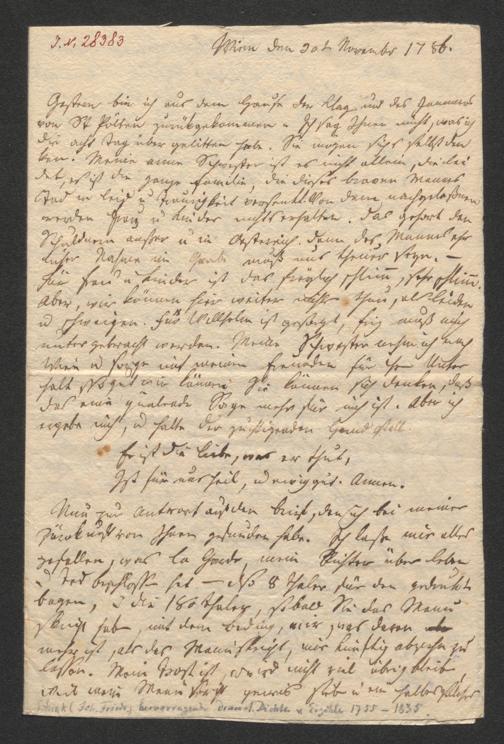 I. N. 28383
Wien den 30t November 1786.
Gestern bin ich aus dem Hause der Klag und des Jammers
von St Pölten zurückgekommen – Ich sag Ihnen nicht, was ich
die acht Tag über gelitten habe. Sie mögen sichs selbst den
ken. Meine arme Schwester ist es nicht allein, die lei
det, es ist die ganze Familie, die dieses braven Manns
Tod in Leid u Traurigkeit versenkt. Von dem nachgelaßnen
werden Frau u Kinder nichts erhalten. Das gehört den
Schuldnern außer u in Oesterreich. Denn des Manns ehr
licher Nahme im Grabe muß uns theuer seyn. –
Für Frau u Kinder ist das freylich schlimm, sehr schlimm.
Aber, wir können hier weiter nichts thun, als leiden
u schweigen. Für Willhelm ist gesorgt, muß auch
unter gebracht werden. Meine Schwester nehm ich nach
Wien u sorge mit meinen Freunden für ihren Unter
halt so gut wir können. Sie können sich denken, daß
das eine Sorge mehr für mich ist. Aber ich
ergebe mich, u halte der züchtigenden Hand still.
Er ist die Liebe, was er thut,
Ist für uns heil, u ewig gut. Amen.
Nun zur Antwort auf den Brief, den ich bei meiner
Zurückkunft von Ihnen gefunden habe. Ich lasse mir alles
gefallen, was la Garde, mein Richter über Leben
u Tod beschlossen hat – also 8 Thaler für den gedruckten
bogen, u die 180 thaler, sobald Sie das Manu
skript haben mit dem beding, mir, was davon
mehr ist, als das Manuskript, mir künftig abziehn zu
lassen. Mein Trost ist, es wird nicht viel übrig bleiben
weil mein Manuskript gewis
(Joh. Friedr.) hervorragender dramat. Dichter u. Erzähler 1755 – 1835